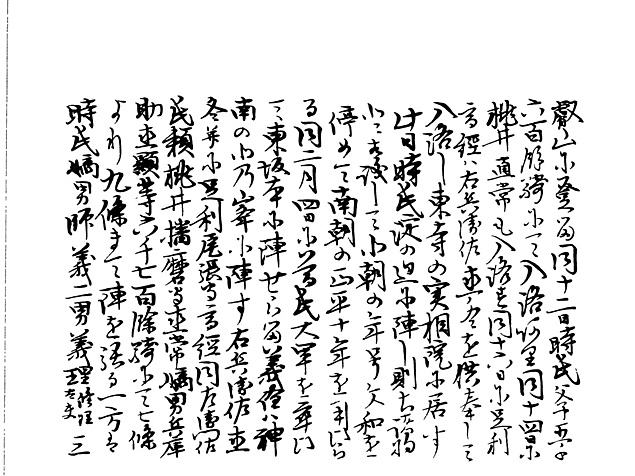 叡山に登る同十二日時氏父子五千
六百餘騎にて入洛し同十四日
桃井直常も入洛す同十六日に足利
高經右兵衛佐直冬を供奉して
入洛し東寺の実相院に居す
廿日時氏淀の辺に陣し則
して北朝の年号文和を
停めて南朝の正平十年を用
る同二月四日に尊氏大軍を率
て東坂本に陣せらる義詮神
南の北乃峯に陣す右兵衛佐直
冬に足利尾張守高經同左衛門佐
氏頼桃井播磨守直常嫡男兵庫
助直顯等六千七百餘騎にて七條
より九條まて陣を張る一方
時氏嫡男師義二男義理修理大夫三